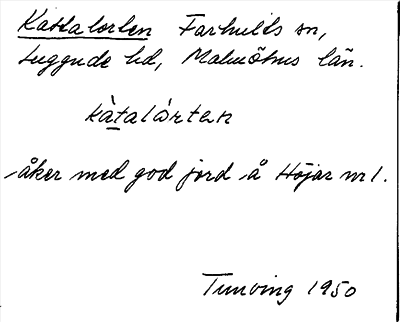 Kattalorten Farhults sn,
Luggude hd, Malmöhus län.
kàtalórten
åker med god jord å Höjar nr 1.
Tunving 1950